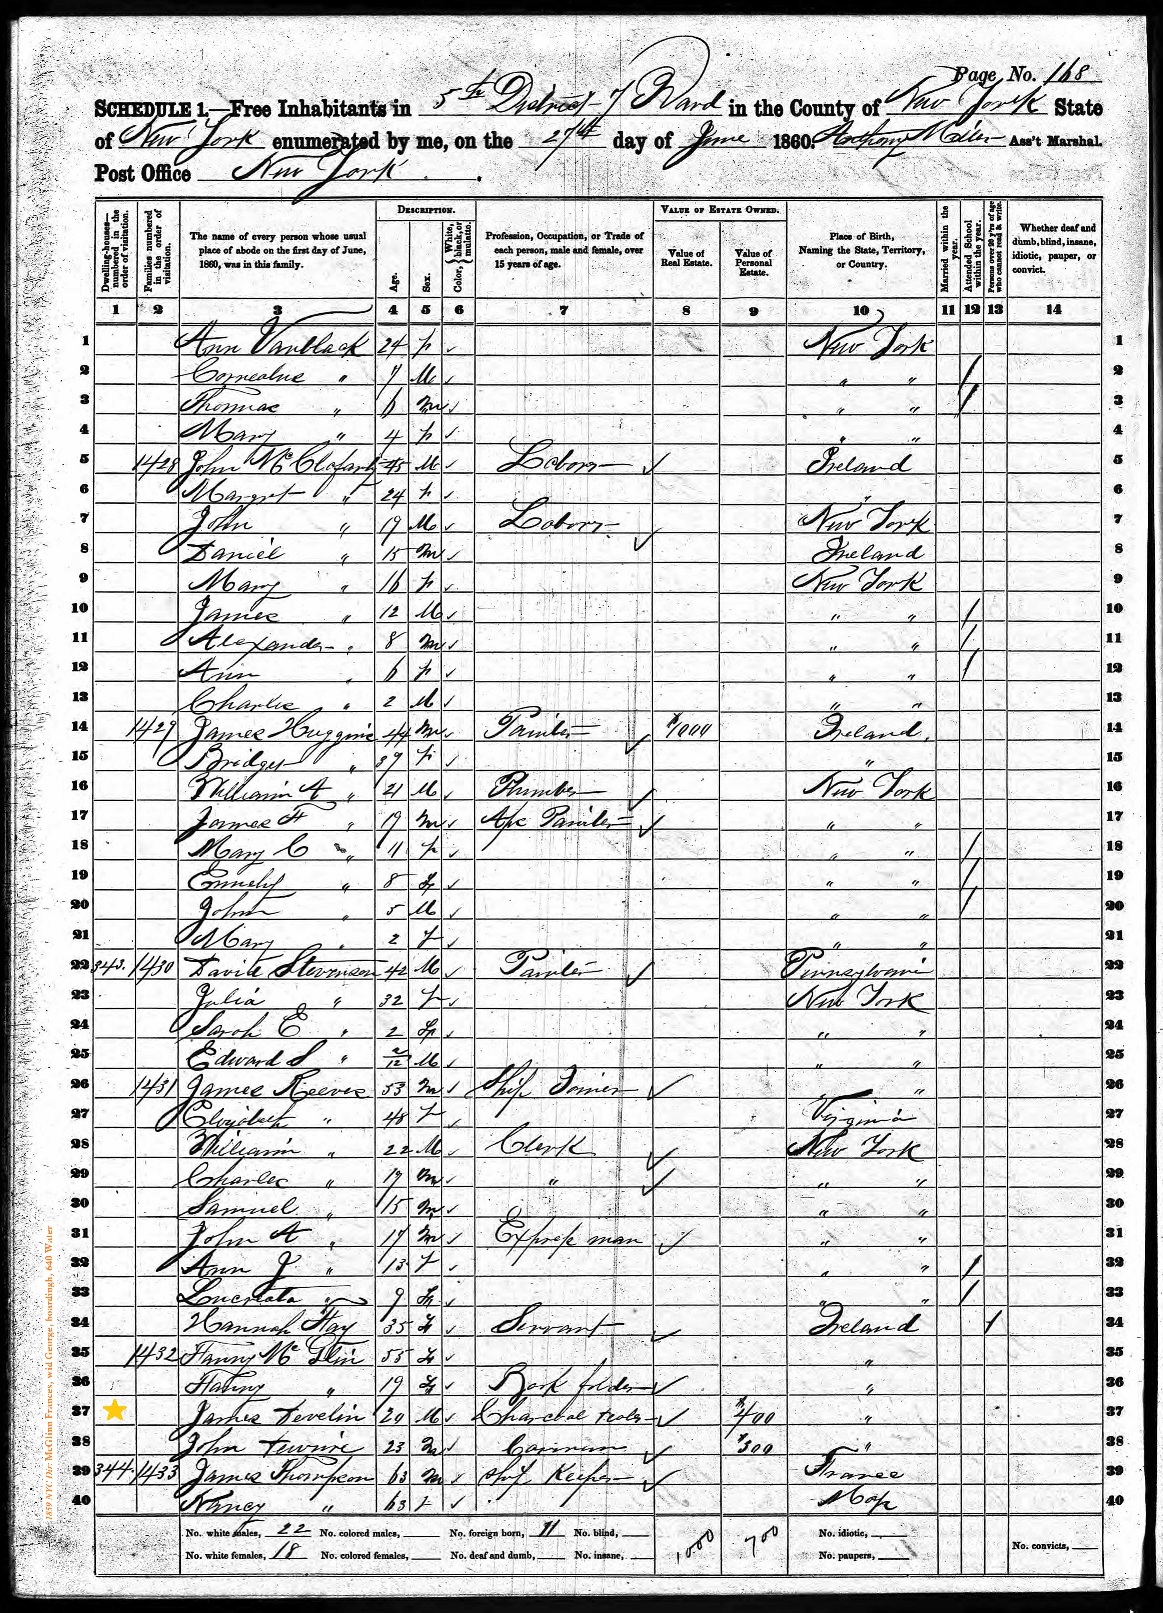 Page No. 168
SCHEDULE 1.—Free Inhabitants in 5th District 7 Ward in the County of New York State
of New York enumerated by me, on the 27th day of June 1860. Anthony Miller Ass't Marshal.
Post Office New York.
DESCRIPTION. VALUE OF ESTATE OWNED.
Dwelling-houses—numbered in the order of visitation. Families numbered in the order of visitation. The name of every person whose usual place of abode on the first day of June, 1860, was in this family. Age. Sex. Color, White, black, or mulatto. Profession, Occupation, or Trade of each person, male and female, over 15 years of age. Value of Real Estate. Value of Personal Estate. Place of Birth, Naming the State, Territory, or Country. Married within the year. Attended School within the year. Persons over 20 y'rs of age who cannot read & write. Whether deaf and dumb, blind, insane, idiotic, pauper, or convict.
1 2 3 4 5 6 7 8 9 10 11 12 13 14
1 Ann Vanblack 24 f ✓ New York 1
2 Cornealus " 7 M ✓ " " / 2
3 Thomas " 6 m ✓ " " / 3
4 Mary " 4 f ✓ " " 4
5 1428 John McClafarty 45 M ✓ Labor ✓ Ireland 5
6 Margret " 24 f ✓ " 6
7 John " 19 M ✓ Labor ✓ New York 7
8 Daniel " 15 m ✓ Ireland 8
9 Mary " 16 f ✓ New York 9
10 James " 12 M ✓ " " / 10
11 Alexander " 8 m ✓ " " / 11
12 Ann " 6 f ✓ " " / 12
13 Charles " 2 M ✓ " " 13
14 1429 James Huggins 44 m ✓ Painter ✓ $1000 Ireland 14
15 Bridget " 39 f ✓ " 15
16 William A " 21 M ✓ Plumber ✓ New York 16
17 James F " 19 m ✓ Apc Painter ✓ " " 17
18 Mary C " 11 f ✓ " " / 18
19 Emmely " 8 f ✓ " " / 19
20 John " 5 M ✓ " " / 20
21 Mary " 2 f ✓ " " 21
22 343 1430 David Stevenson 42 M ✓ Painter ✓ Pinnsylvani 22
23 Julia " 32 f ✓ New York 23
24 Sarah E " 2 f ✓ " " 24
25 Edward S " 2/12 M ✓ " " 25
26 1431 James Reeves 53 m ✓ Ship Joiner ✓ " " 26
27 Elizabeth " 48 f ✓ Virginia 27
28 William " 22 M ✓ Clerk ✓ New York 28
29 Charles " 19 m ✓ " ✓ " " 29
30 Samuel " 15 m ✓ " " 30
31 John A " 17 m ✓ Express man ✓ " " 31
32 Ann J " 13 f ✓ " " / 32
33 Lucreata " 9 f ✓ " " / 33
34 Hannah Hay 35 f ✓ Servant ✓ Ireland / 34
35 1432 Fanny McGlin 55 f ✓ " 35
36 Fanny " 19 f ✓ Book folder ✓ " 36
37 James Develin 20 M ✓ Charcoal ✓ $400 " 37
38 John 23 m ✓ ✓ $300 " 38
39 344 1433 James Thompson 63 m ✓ Keeper ✓ France 39
40 Nancy " 63 f ✓ 40
No. white males, 22 No. colored males, No. foreign born, 11 No. blind, 1000 700 No. idiotic,
No. white females, 18 No. colored females, No. deaf and dumb, No. insane, No. paupers, No. convicts,
1859 NYC Dir: McGlinn Frances, wid George, boardingh, 640 Water